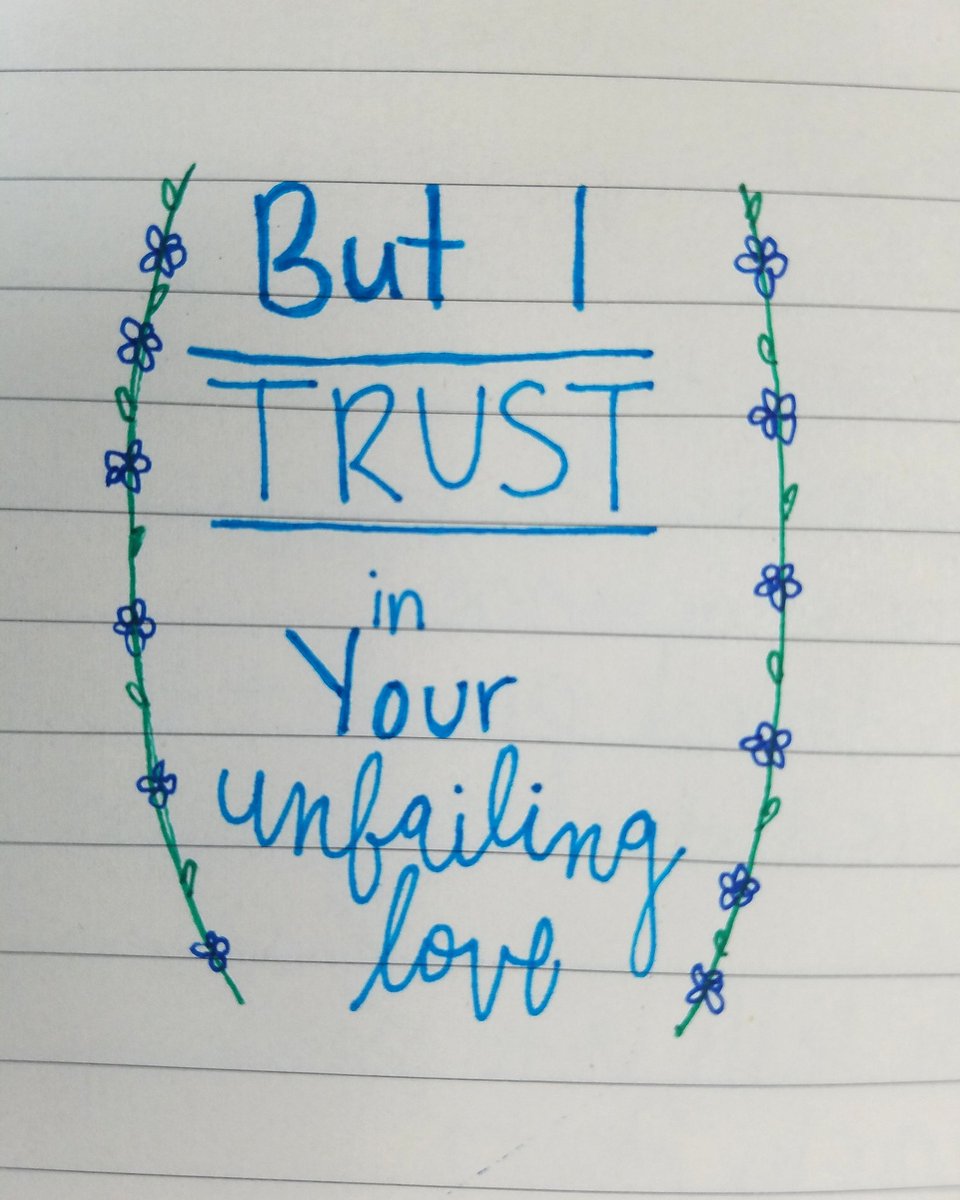 But I
TRUST
in
Your
unfailing
love